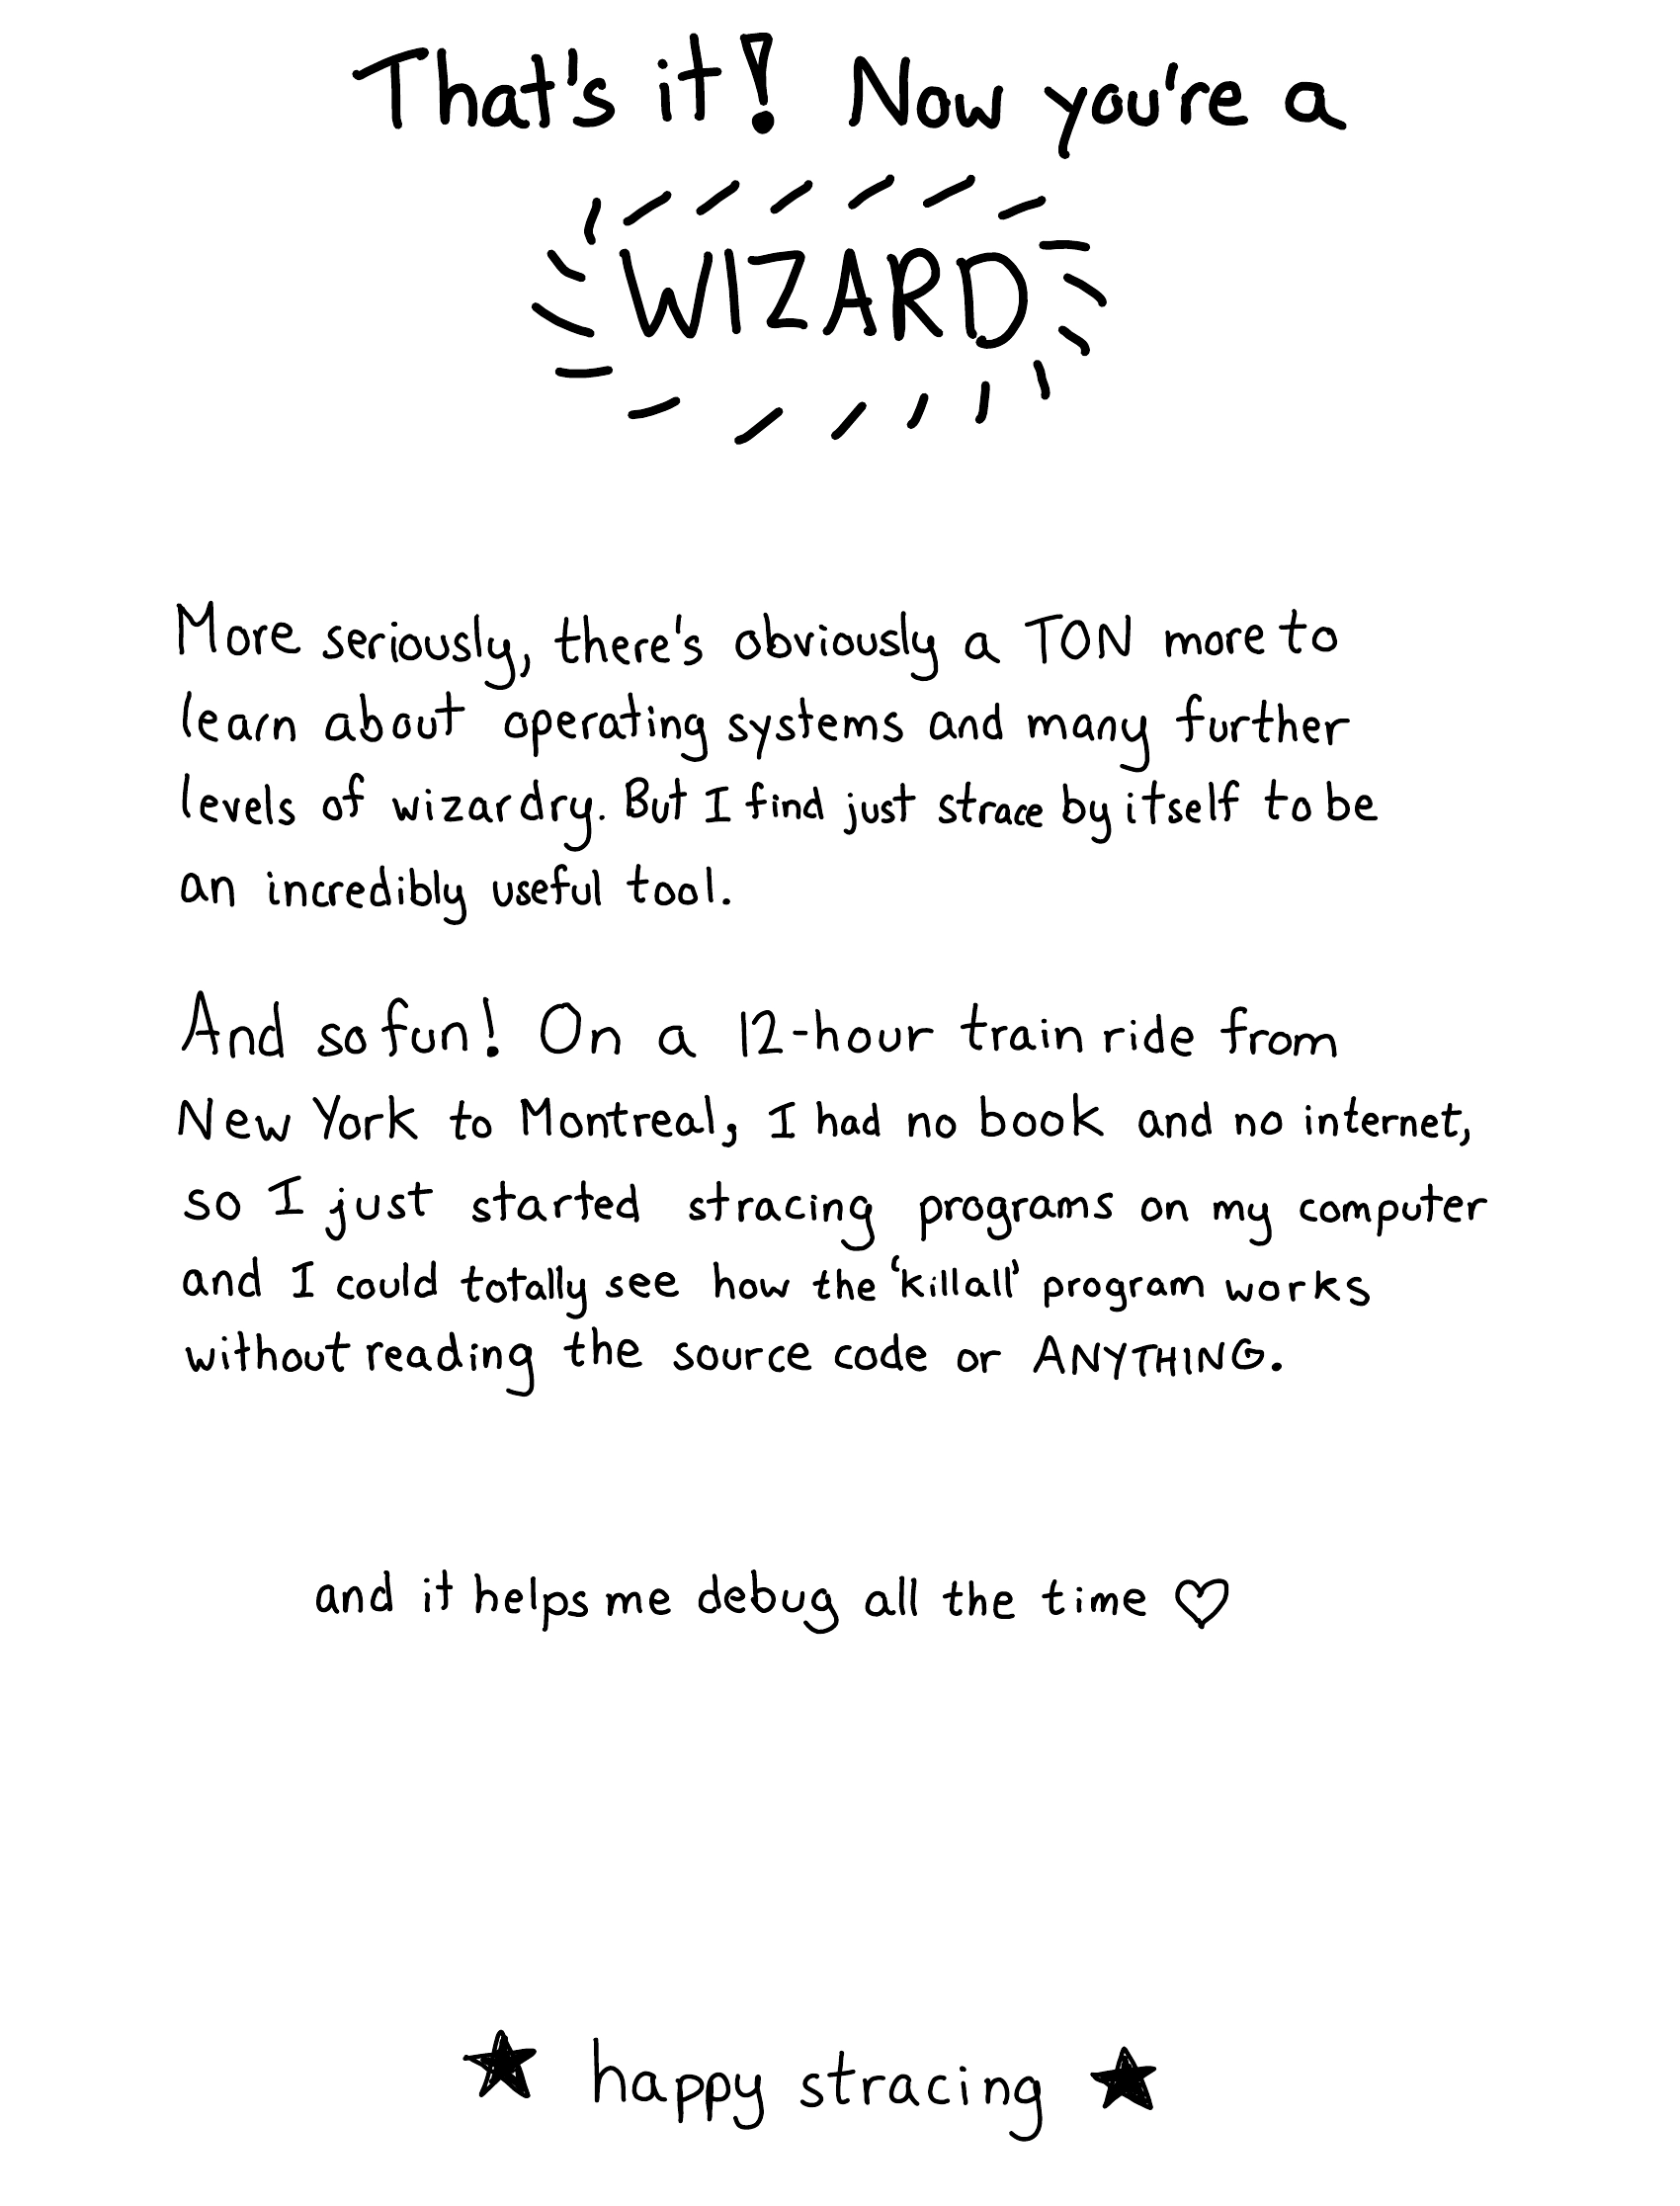 That's it! Now you're a
WIZARD
More seriously, there's obviously a TON more to
learn about operating systems and many further
levels of wizardry. But I find just strace by itself to be
an incredibly useful tool.
And so fun! On a 12-hour train ride from
New York to Montreal, I had no book and no internet,
so I just started stracing programs on my computer
and I could totally see how the 'killall' program works
without reading the source code or ANYTHING.
and it helps me debug all the time ♡
★ happy stracing ★